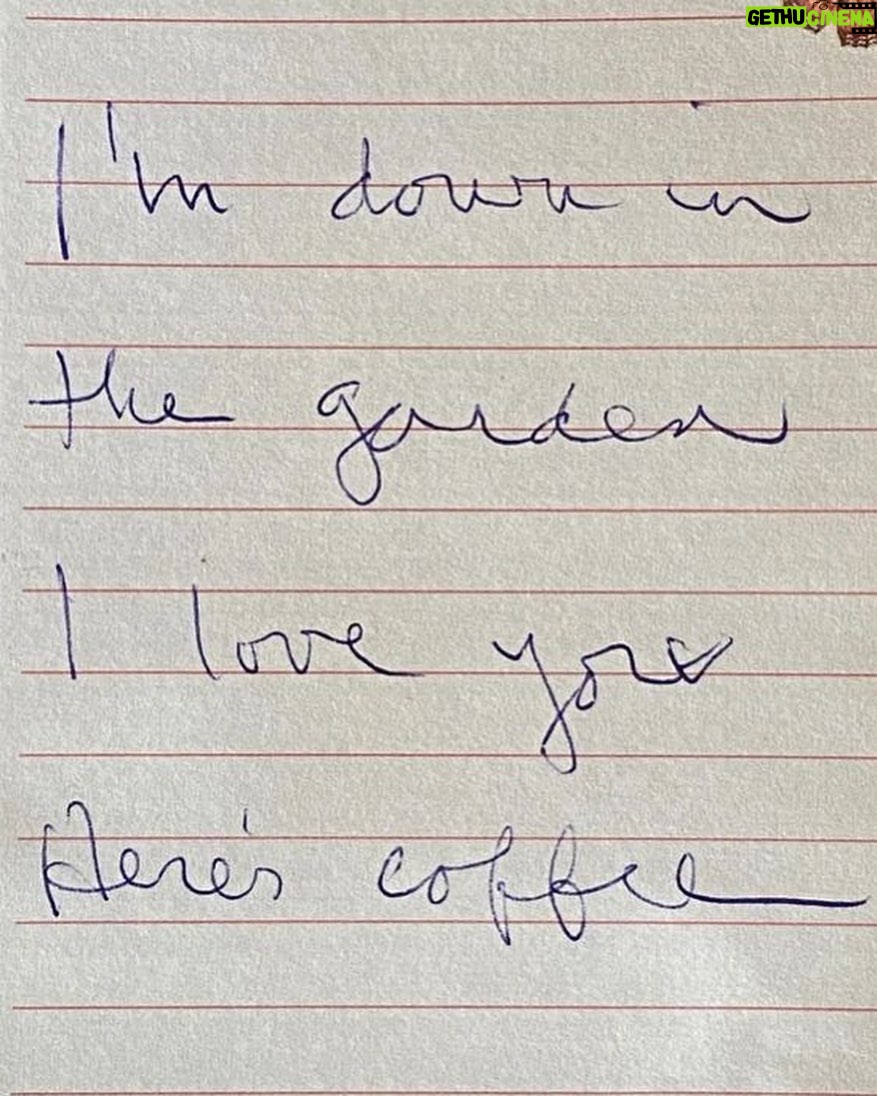 GETHUCINEMA
I'm down in
the garden
I love you
Here's coffee